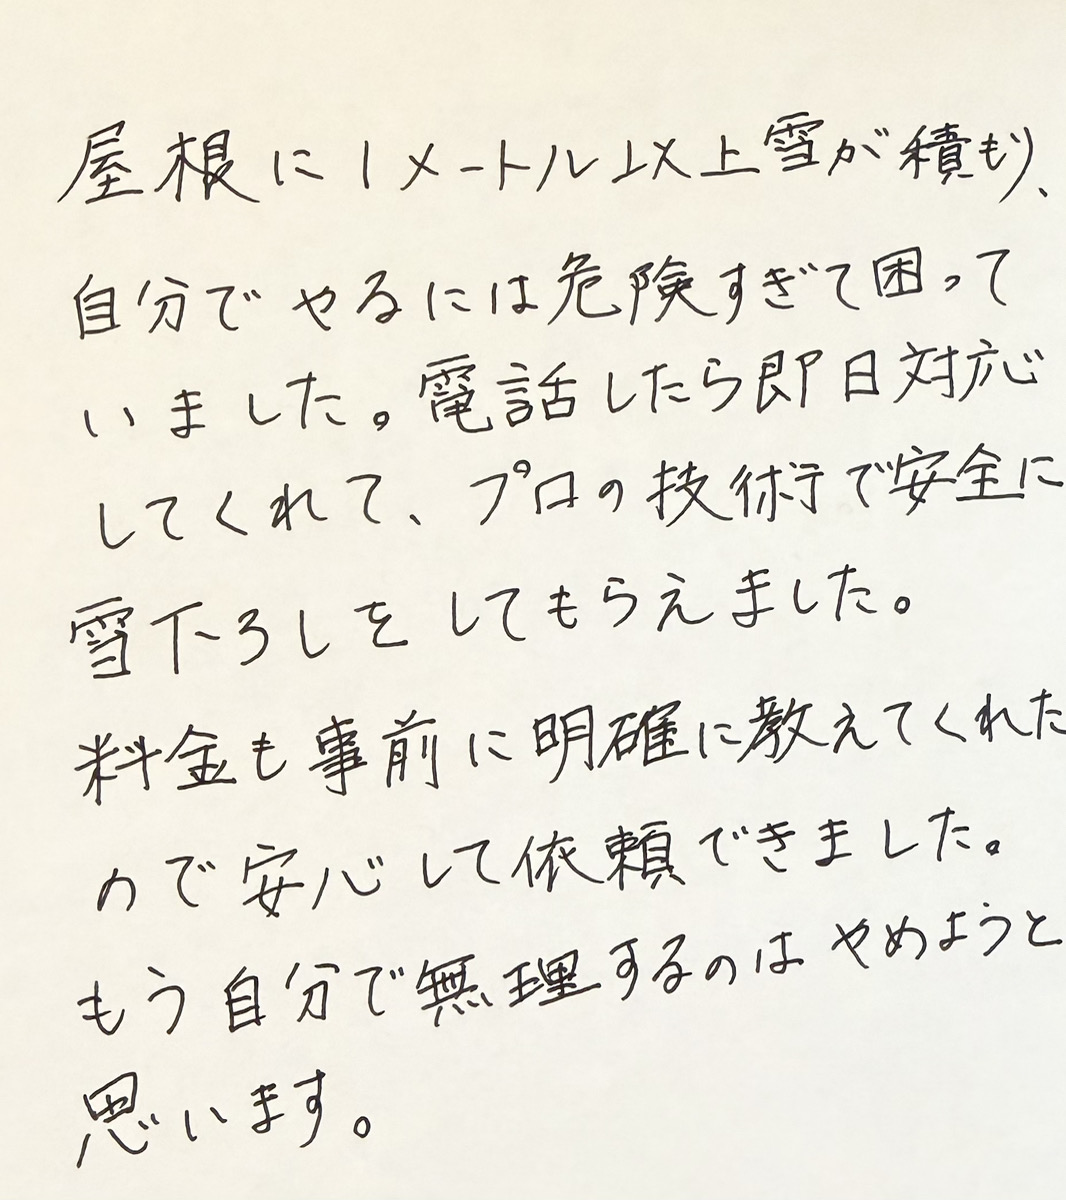 屋根に1メートル以上雪が積もり、
自分でやるには危険すぎて困って
いました。電話したら即日対応
してくれて、プロの技術で安全に
雪下ろしをしてもらえました。
料金も事前に明確に教えてくれた
ので安心して依頼できました。
もう自分で無理するのはやめようと
思います。